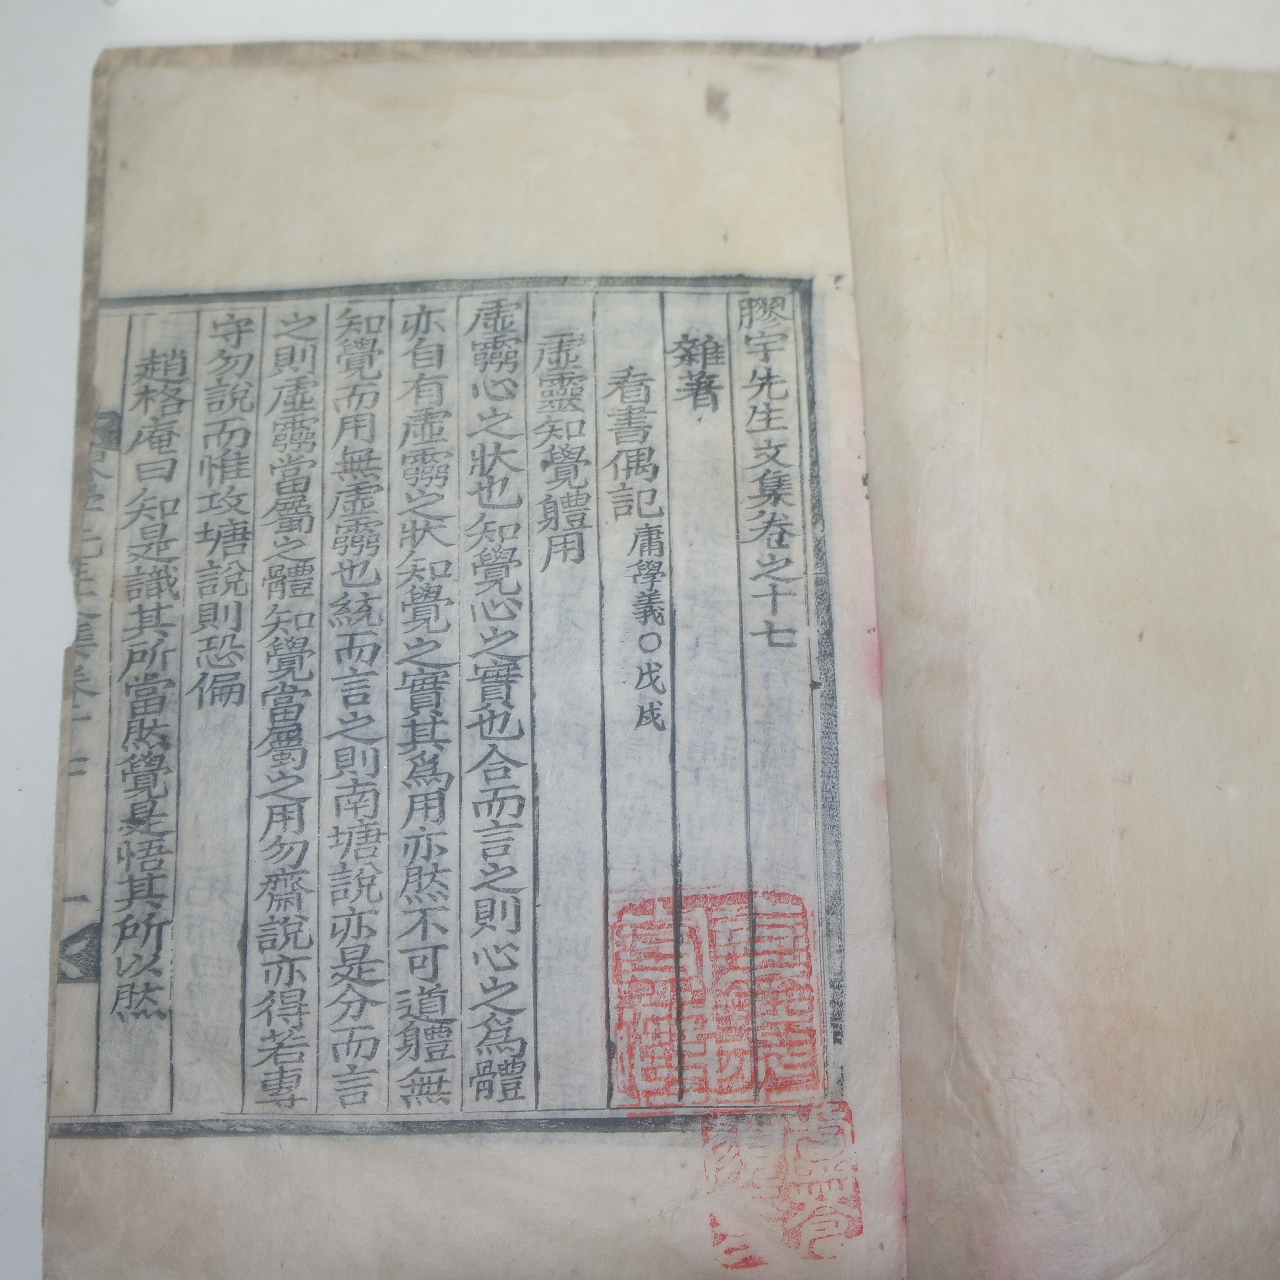 膠宇先生文集卷之十七
雜著
看書偶記 庸學義○戊戌
虛靈知覺軆用
虛靈心之狀也知覺心之實也合而言之則心之爲體
亦自有虛靈之狀知覺之實其爲用亦然不可道軆無
知覺而用無虛靈也統而言之則南塘說亦是分而言
之則虛靈當屬之體知覺當屬之用勿齋說亦得若專
守勿說而惟攻塘說則恐偏
趙格庵曰知是識其所當然覺是悟其所以然